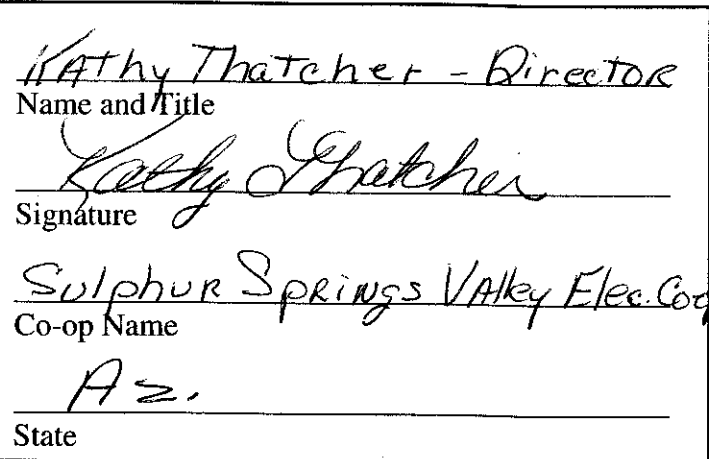 Kathy Thatcher - Director
Name and Title
Kathy Thatcher
Signature
Sulphur Springs Valley Elec. Coop
Co-op Name
Az.
State